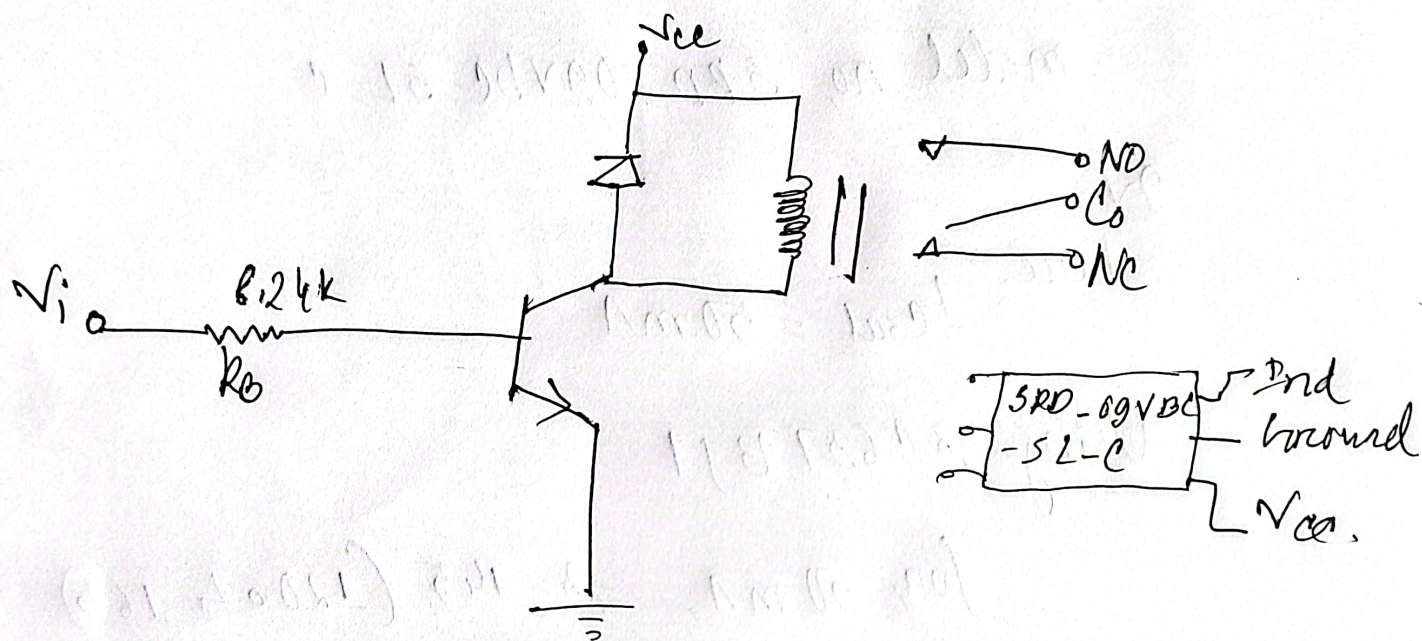 Vcc
NO
Co
NC
Vi
8.24k
RB
SRD-09VDC
-SL-C
Ind
Ground
Vcc.